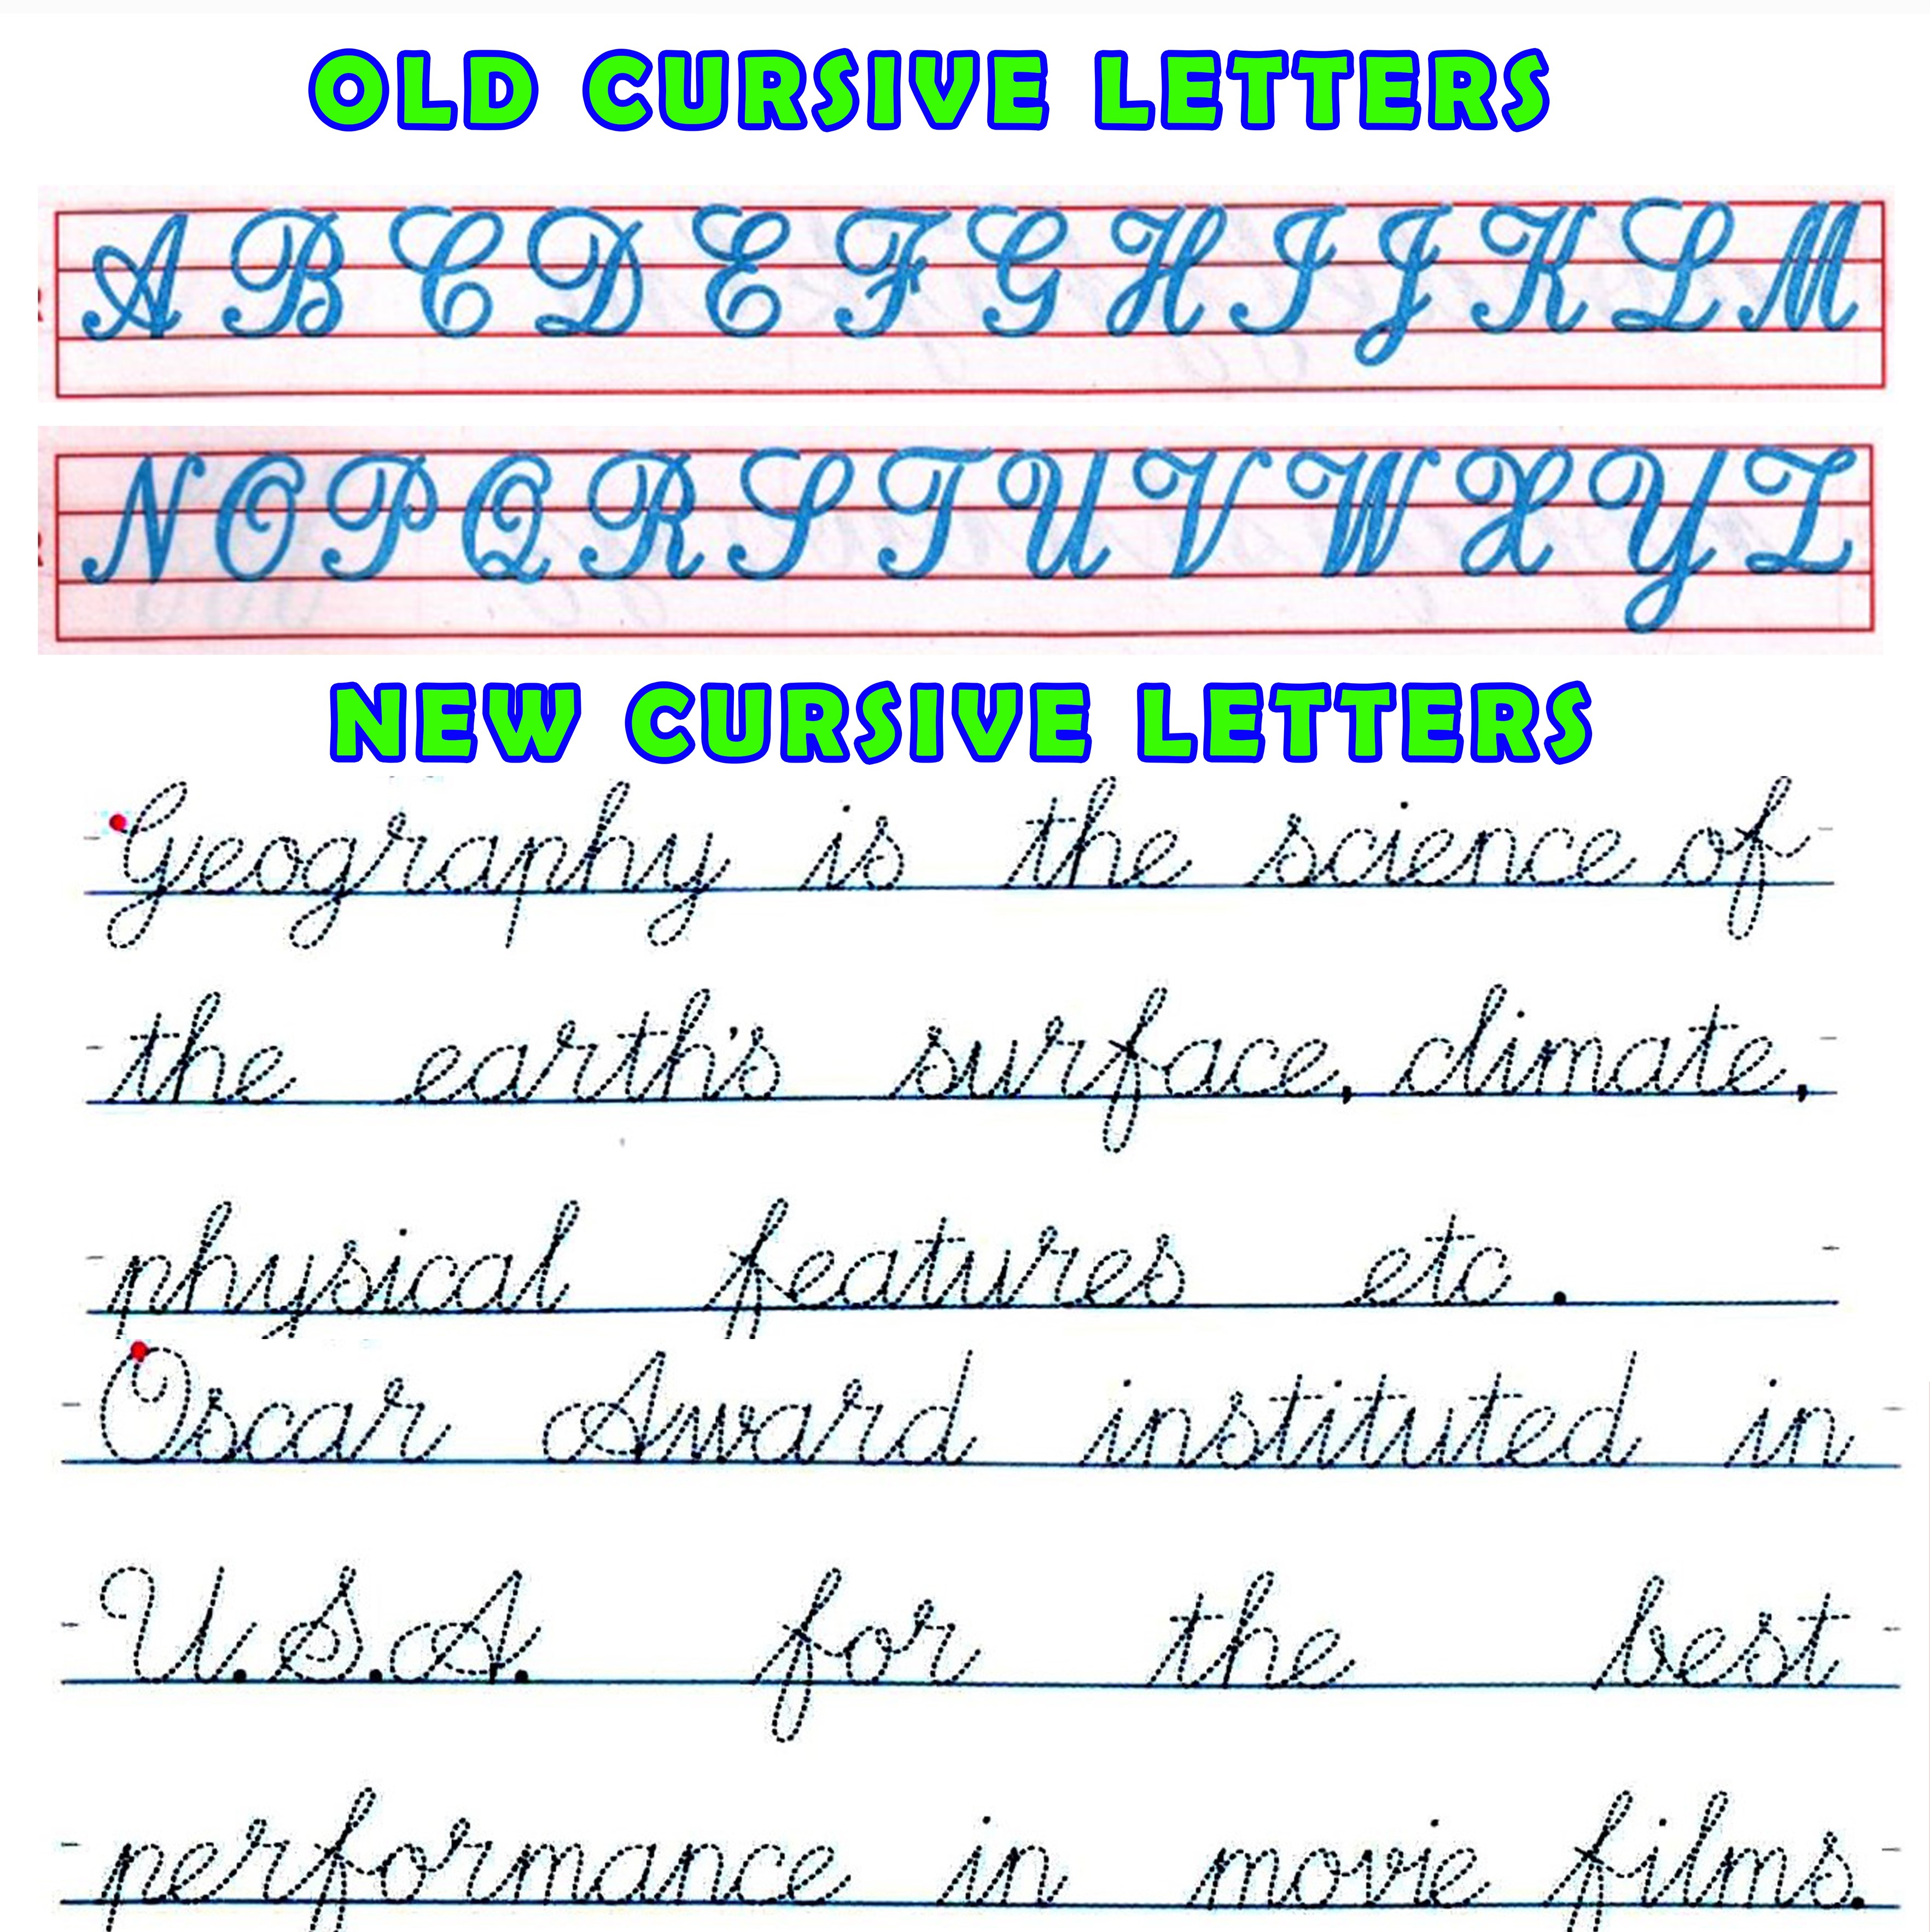 OLD CURSIVE LETTERS
A B C D E F G H I J K L M
N O P Q R S T U V W X Y Z
NEW CURSIVE LETTERS
Geography is the science of
the earth's surface, climate,
physical features etc.
Oscar Award instituted in
U.S.A. for the best
performance in movie films.